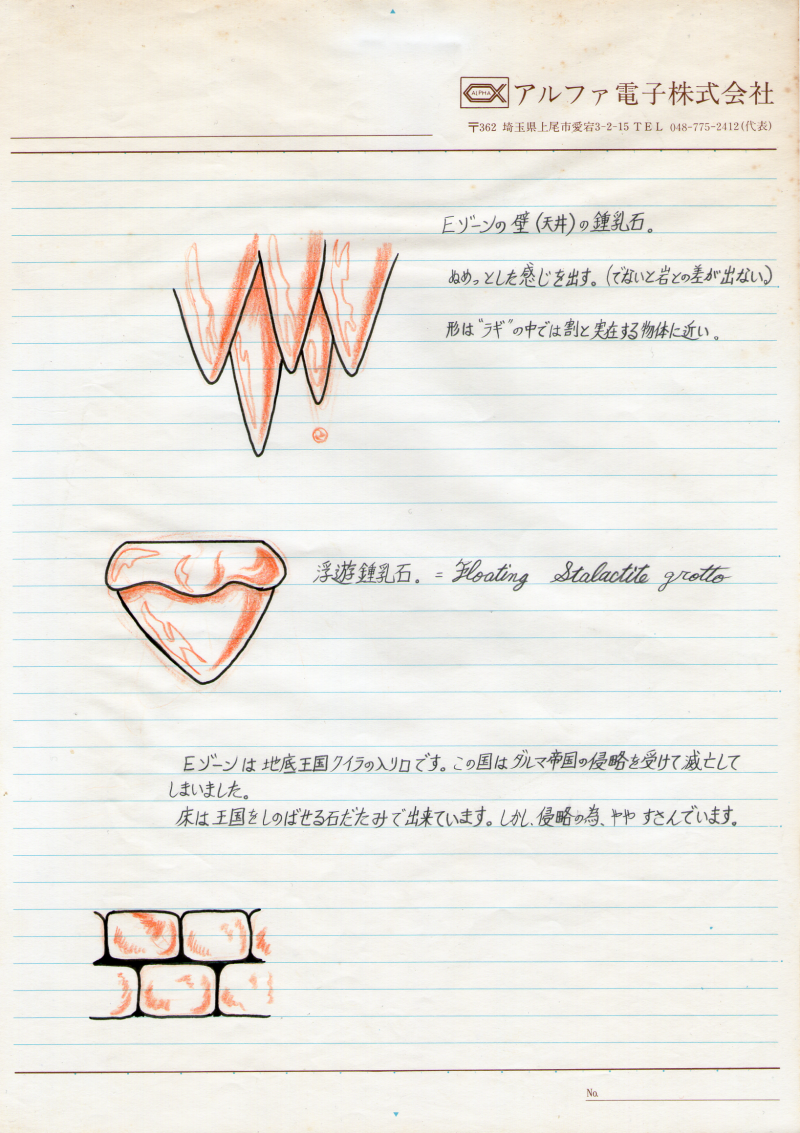 ALPHA アルファ電子株式会社
〒362 埼玉県上尾市愛宕3-2-15 TEL 048-775-2412(代表)
Eゾーンの壁(天井)の鍾乳石。
ぬめっとした感じを出す。(でないと岩との差が出ない。)
形は"ラギ"の中では割と実在する物体に近い。
浮遊鍾乳石。= Floating Stalactite grotto
Eゾーンは地底王国クイラの入り口です。この国はダルマ帝国の侵略を受けて滅亡して
しまいました。
床は王国をしのばせる石だたみで出来ています。しかし、侵略の為、ややすさんでいます。
No.